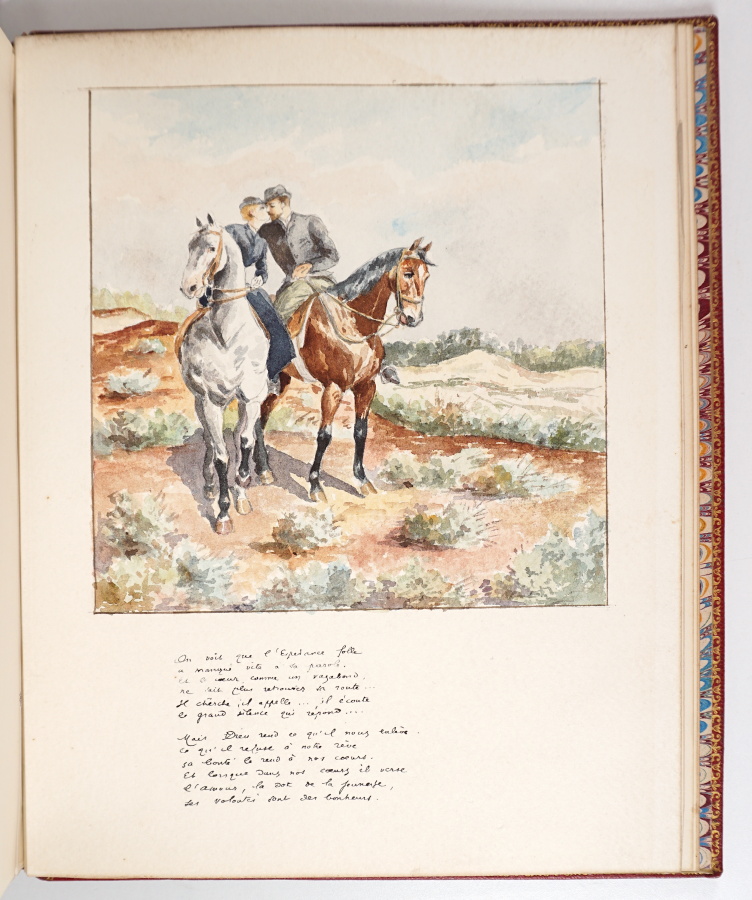 On voit que l'Espérance folle
a manqué vite à sa parole.
Et le cœur, comme un vagabond,
ne sait plus retrouver sa route...
Il cherche, il appelle..., il écoute
le grand silence qui répond....
Mais Dieu rend ce qu'il nous enlève.
ce qu'il refuse à notre rêve
sa bonté le rend à nos cœurs.
Et lorsque dans nos cœurs il verse
l'amour, la dot de la jeunesse,
ses volontés sont des bonheurs.